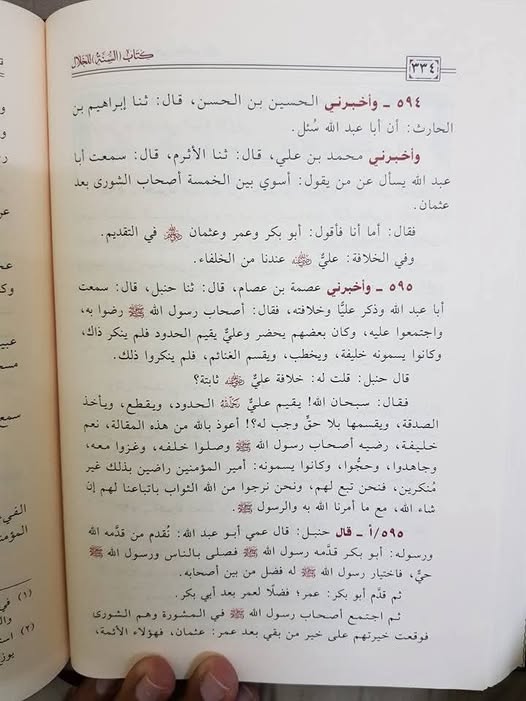 كتاب (السنة) للخلال
٣٣٤
٥٩٤ ـ وأخبرني الحسين بن الحسن، قال: ثنا إبراهيم بن
الحارث: أن أبا عبد الله سُئل.
وأخبرني محمد بن علي، قال: ثنا الأثرم، قال: سمعت أبا
عبد الله يسأل عن من يقول: أسوي بين الخمسة أصحاب الشورى بعد
عثمان.
فقال: أما أنا فأقول: أبو بكر وعمر وعثمان ﵃ في التقديم.
وفي الخلافة: عليٌّ ﵁ عندنا من الخلفاء.
٥٩٥ ـ وأخبرني عصمة بن عصام، قال: ثنا حنبل، قال: سمعت
أبا عبد الله وذكر عليًّا وخلافته، فقال: أصحاب رسول الله ﷺ رضوا به،
واجتمعوا عليه، وكان بعضهم يحضر وعليٌّ يقيم الحدود فلم ينكر ذاك،
وكانوا يسمونه خليفة، ويخطب، ويقسم الغنائم، فلم ينكروا ذلك.
قال حنبل: قلت له: خلافة عليٍّ ﵁ ثابتة؟
فقال: سبحان الله! يقيم عليٌّ ﵀ الحدود، ويقطع، ويأخذ
الصدقة، ويقسمها بلا حقٍّ وجب له؟! أعوذ بالله من هذه المقالة، نعم
خليفة، رضيه أصحاب رسول الله ﷺ وصلوا خلفه، وغزوا معه،
وجاهدوا، وحجُّوا، وكانوا يسمونه: أمير المؤمنين راضين بذلك غير
مُنكرين، فنحن تبع لهم، ونحن نرجوا من الله الثواب باتباعنا لهم إن
شاء الله، مع ما أمرنا الله به والرسول ﷺ.
٥٩٥/أ ـ قال حنبل: قال عمي أبو عبد الله: نُقدم من قدَّمه الله
ورسوله: أبو بكر قدَّمه رسول الله ﷺ فصلى بالناس ورسول الله ﷺ
حيٌّ، فاختيار رسول الله ﷺ له فضل من بين أصحابه.
ثم قدَّم أبو بكر: عمر؛ فضلًا لعمر بعد أبي بكر.
ثم اجتمع أصحاب رسول الله ﷺ في المشورة وهم الشورى
فوقعت خيرتهم على خير من بقي بعد عمر: عثمان، فهؤلاء الأئمة،